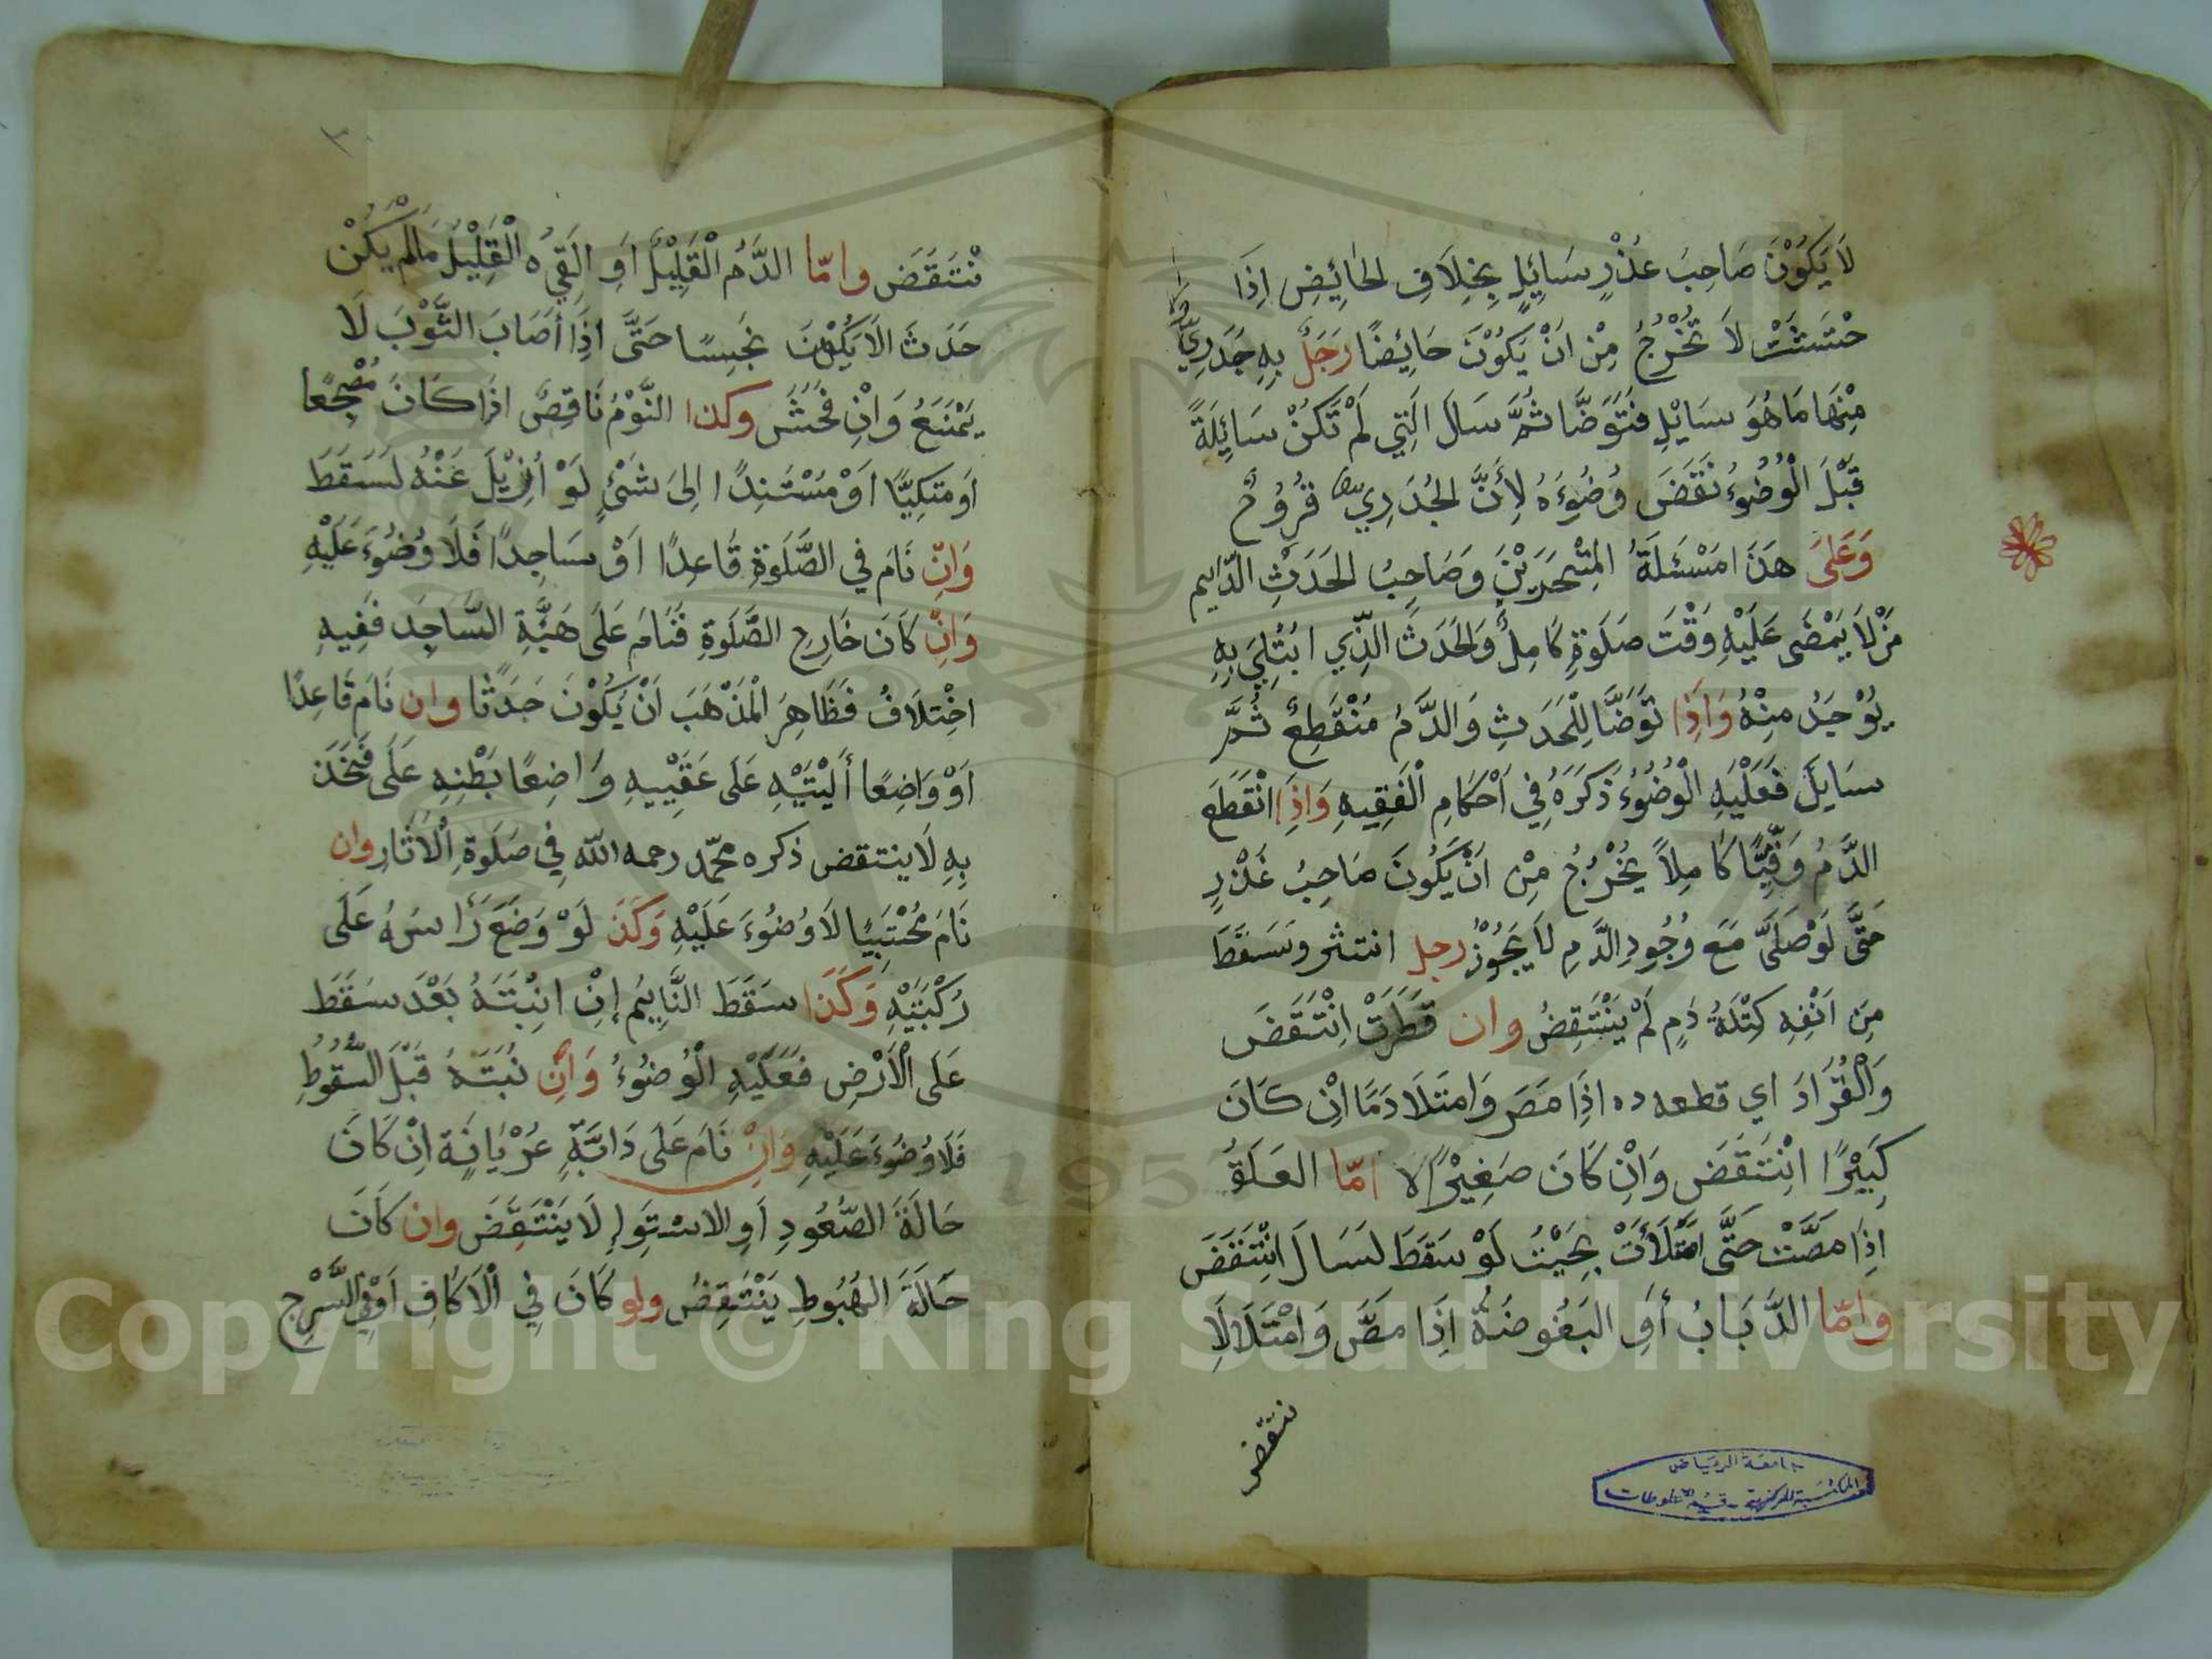 لَا يَكُوْنَ صَاحِبَ عُذْرٍ سَائِلٍ بِخِلَافِ الحَائِضِ اِذَا
حْتَسَشَتْ لَا تَخْرُجُ مِنْ اَنْ يَكُوْنَ حَائِضًا رَجُلٌ بِهِ جُدَرِيٌّ
مِنْهَا مَا هُوَ سَايِلٌ فَتَوَضَّا ثُمَّ سَالَ الَّتِي لَمْ تَكُنْ سَائِلَةً
قَبْلَ الْوُضُوءِ نَقَضَ وُضُوءَهُ لِأَنَّ الجُدَرِي قُرُوْحٌ
وَعَلىَ هَذَا مَسْئَلَةُ الْمِنْحَرَيْنِ وَصَاحِبُ الحَدَثِ الدَّايِم
مَنْ لَا يَمْضَى عَلَيْهِ وَقْتَ صَلَوةٍ كَامِلٌ وَالحَدَثَ الَّذِي ابْتُلِيَ بِهِ
يُوْجَدُ مِنْهُ وَاِذَا تَوَضَّا لِلْحَدَثِ وَالدَّمُ مُنْقَطِعٌ ثُمَّ
سَايَلَ فَعَلَيْهِ الْوُضُوْءُ ذَكَرَهُ فِي اَحْكَامِ الْفَقِيهِ وَاِذَا انْقَطَعَ
الدَّمُ وَقْتًا كَامِلاً يَخْرُجُ مِنْ اَنْ يَكُونَ صَاحِبُ عُذْرٍ
حَتَّى لَوْ صَلَّى مَعَ وُجُودِ الدَّمِ لَا يَجُوْزُ رجل انتثر وسَقَطَ
مِنَ اَنْفِهِ كُتْلَةُ دَمٍ لَمْ يَنْتَقِضُ وان قَطَرَتْ اِنْتَقَضَ
وَالْقُرَادَ اي قطعه ده اِذَا مَصَ وَامْتَلَا دَمًا اِنْ كَانَ
كَبِيْرًا انْتَقَضَ وَاِنْ كَانَ صَغِيْرًا لا امّا العَلَقُ
اِذَا مَصَّتْ حَتَّى امْتَلَأَتْ بِحَيْثُ لَوْ سَقَطَ لَسَالَ انْتَقَضَ
وَامّا الذُّبَابُ أَوِ البَعُوضَةُ اِذَا مَصَّ وَامْتَلَا لَا
ينتقض
جامعة الرياض
المكتبة المركزية - قسم المخطوطات
٣
نْتَقَضَ وامّا الدَّمُ الْقَلِيْلُ اَوِ الَقِيُ الْقَلِيْلُ مَالَمْ يَكُنْ
حَدَثَ الَا يَكُوْنَ نَجِسًا حَتَّى اِذَا أَصَابَ الثَّوْبَ لَا
يَمْنَعُ وَاِنْ فَحُشَ وكذا النَّوْمُ نَاقِضٌ اذَا كَانَ مُضْجِعًا
اَو مَتَكِيًا اَوْ مُسْتَنِدًا اِلىَ شَئْ لَوْ أُزِيْلَ عَنْهُ لَسَقَطَ
وَاِنْ نَامَ فِي الصَّلَوةِ قَاعِدًا اَوْ سَاجِدًا فَلَا وُضُوْءَ عَلَيْهِ
وَاِنْ كَانَ خَارِجِ الصَّلَوةِ فَنَامَ عَلَى هَيْئَةِ السَّاجِد فَفِيهِ
اخْتِلَافُ فَظَاهِرَ الْمَذْهَبَ اَنْ يَكُوْنَ حَدَثًا وان نَامَ قَاعِدًا
اَوْ وَاضِعًا أَلْيَتَيْهِ عَلَى عَقَبَيْهِ وَاضِعًا بَطْنِهِ عَلَى فَخَذَ
بِهِ لَا ينتقض ذكره محمّد رحمه الله فِي صَلَوةِ الْاَثَارِ وان
نَامَ مُحْتَبِيًا لَا وُضُوْءَ عَلَيْهِ وَكَذَ لَوْ وَضَعَ رَأسَهُ عَلَى
رُكْبَتَيْهِ وَكَذَا سَقَطَ النَّايِمُ إِنْ انْبَتَهُ بَعْدَ سَقَطَ
عَلَى الْاَرْضِ فَعَلَيْهِ الْوُضُوْءُ وَاِنْ نُبَتَهُ قَبْلَ السُّقُوْطِ
فَلَا وُضُوْءَ عَلَيْهِ وَاِنْ نَامَ عَلَى دَابَّةٍ عُرْيَانَةِ اِنْ كَانَ
حَالَةَ الصُّعُودِ اَوِ الاستِوَاِ لَا يَنْتَقِضَ وان كَانَ
حَالَةَ الهُبُوطِ يَنْتَقِضُ ولو كَانَ فِي الْاَكَافِ اَوْفِي السَّرْجِ
1957
Copyright © King Saud University